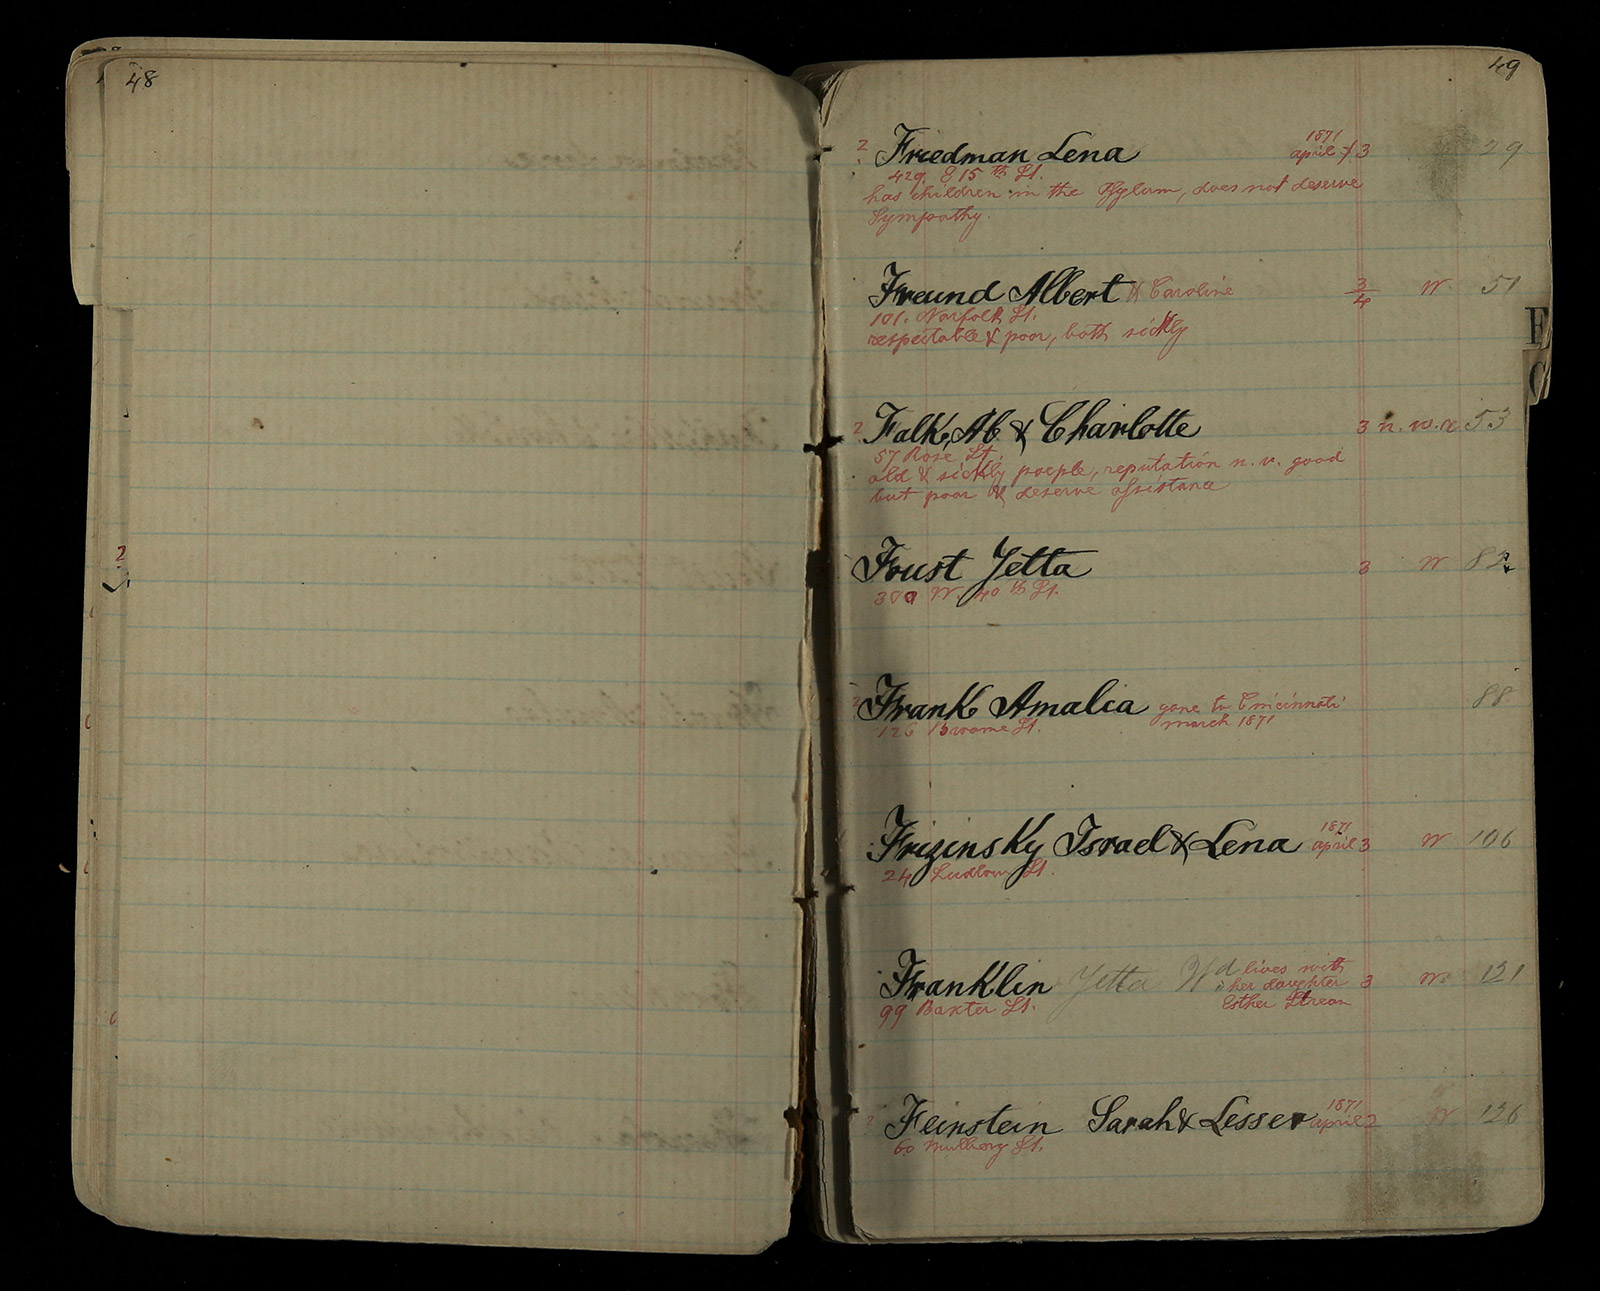 48
49
2 Friedman Lena 1871 april 3 29
429. E 15 th St.
has children in the Asylum, does not deserve
Sympathy.
Freund Albert & Caroline 3/4 W 51
101. Norfolk St.
respectable & poor, both sickly
2 Falk, Ab & Charlotte 3 n. w. r. 53
57 Rose St.
old & sickly poeple, reputation n. v. good
but poor & deserve assistance
Foust Yetta 3 W 82
309 W. 40 th St.
2
Frank Amalia gone to Cincinnati 88
126 Broome St. march 1871
Frizinsky Israel & Lena 1871 april 3 W 106
24 Ludlow St.
Franklin Yetta Wd lives with 3 W 121
her daughter
99 Baxter St. Esther Strean
? Feinstein Sarah & Lesser 1871 april 2 W 126
60 Mulberry St.
F
G